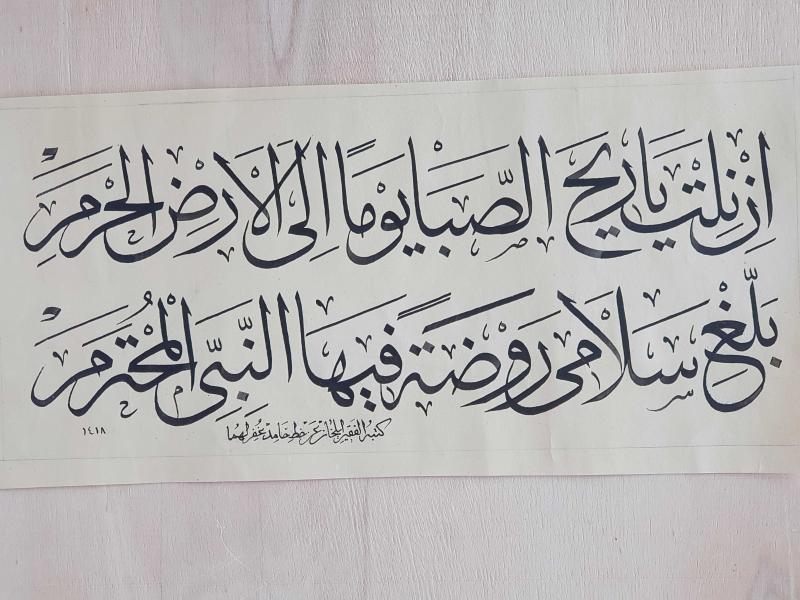 اِنْ نِلْتِ يَا رِيحَ الصَّبَا يَوْمًا اِلَى الْاَرْضِ الْحَرَمْ
بَلِّغْ سَلَامِى رَوْضَةً فِيهَا النَّبِىُّ الْمُحْتَرَمْ
كتبه الفقير المجاز عن خط حامد غفر لهما
١٤١٨